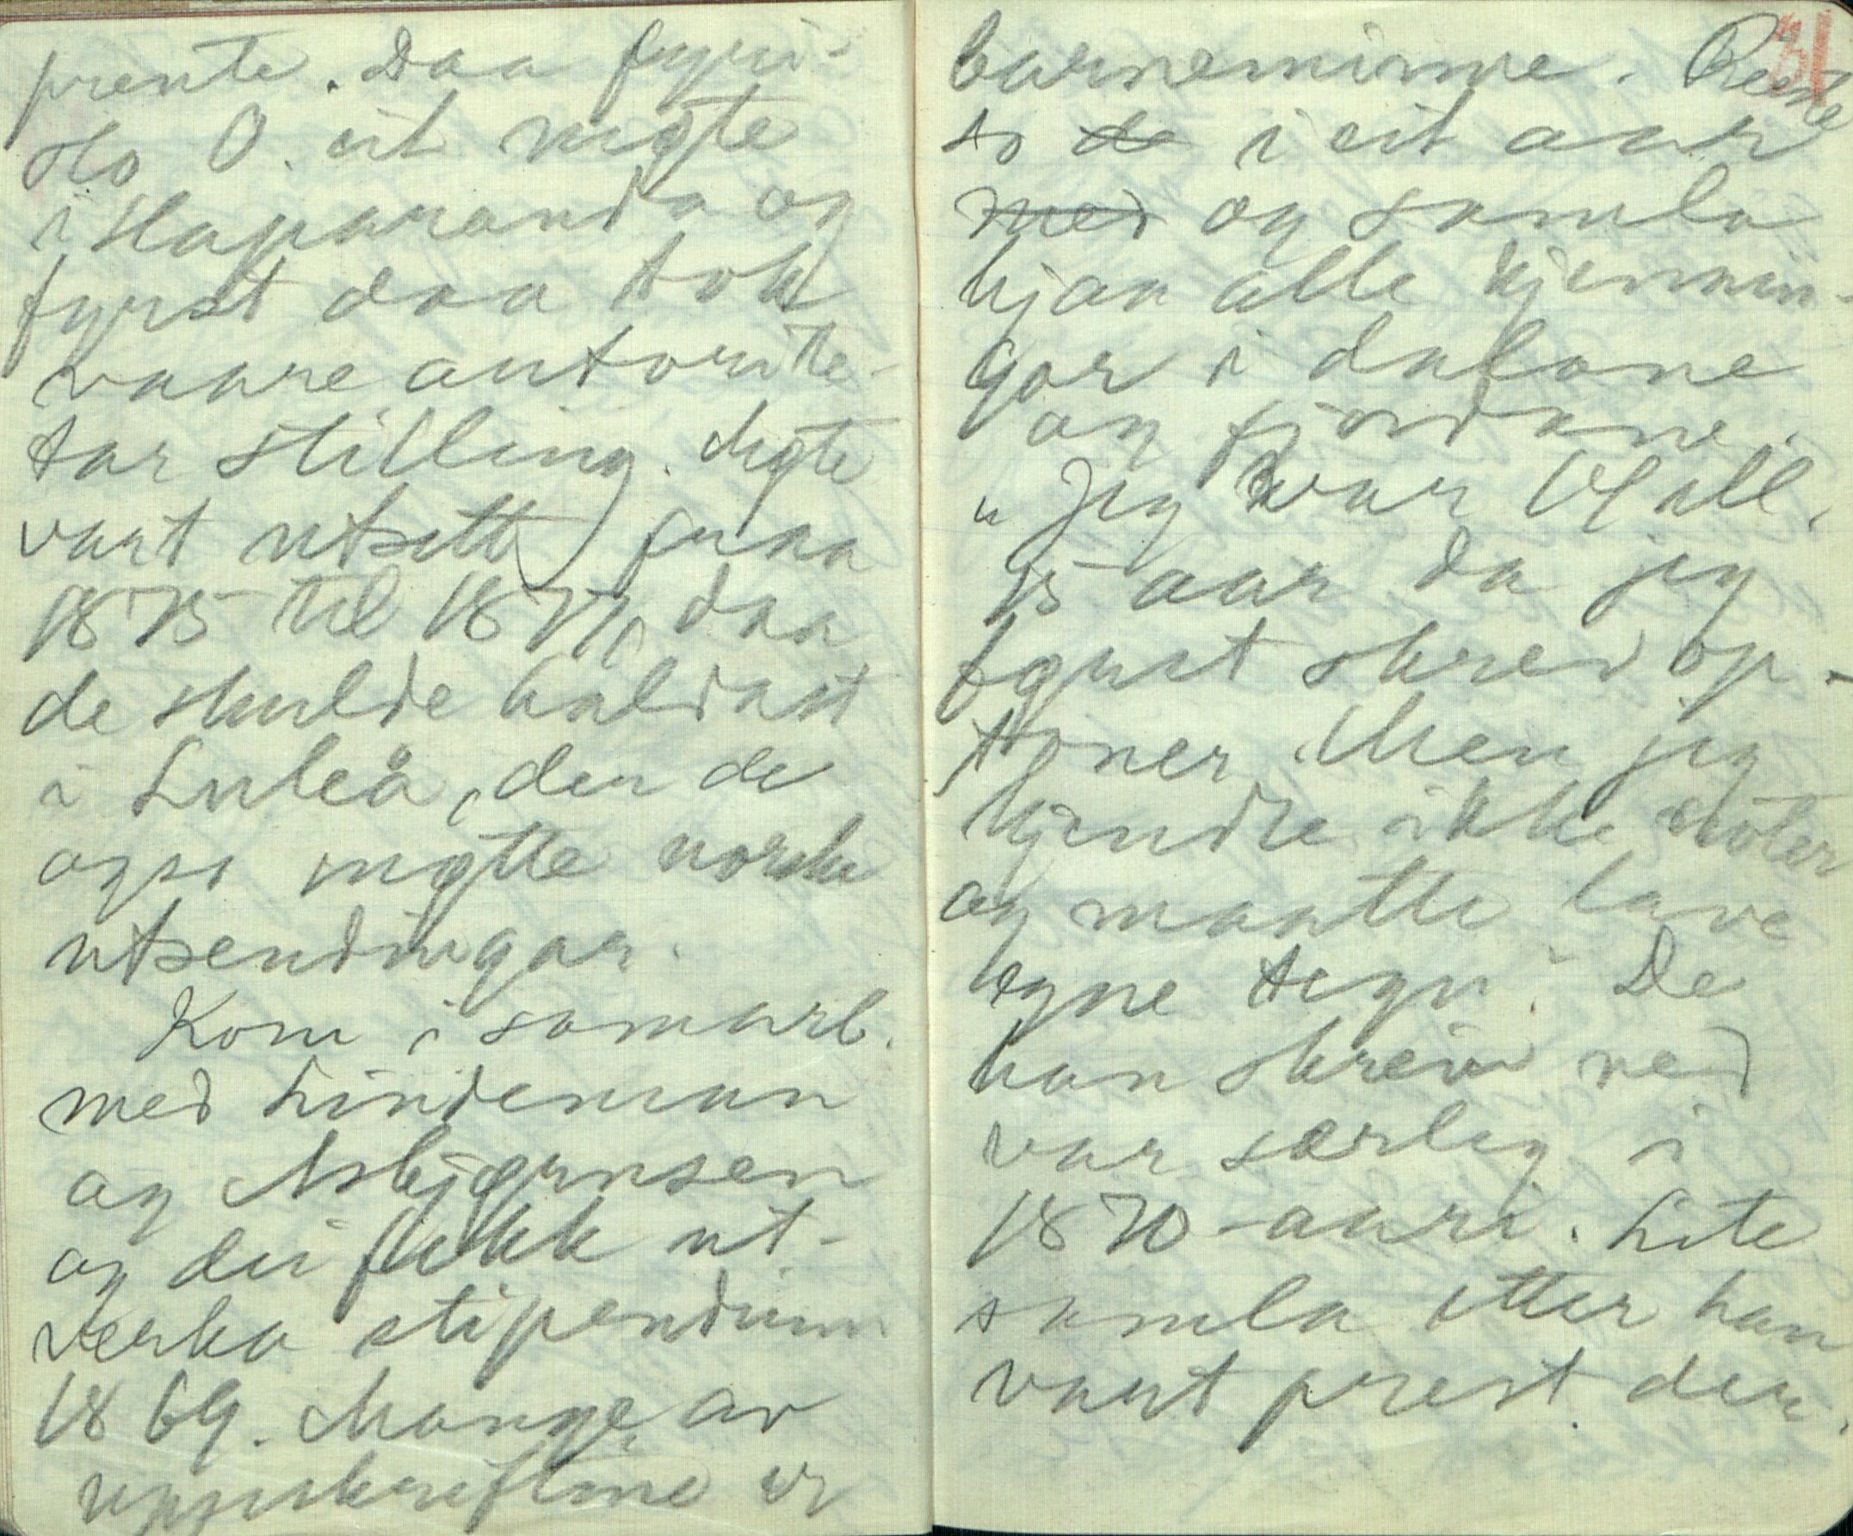 prente. Daa fyri-
slo O. eit møte
i Haparanda og
fyrst daa tok
vaare autorite-
tar stilling. Møte
vart utsett fraa
1875 til 1877, daa
de skulde haldast
i Luleå, der de
ogso møtte norske
utsendingar.
Kom i samarb.
med Lindeman
og Asbjørnsen
og dei fekk ut-
verka stipendium
1869. Mange av
uppskriftine er
barneminne. Reiste
so de i eit aar
med og samla
hjaa alle kjennin-
gar i dalane
og fjordane.
"Jeg var 14 all.
15 aar da jeg
først skrev op
toner. Men jeg
kjendte ikke noter
og maatte lave
egne tegn." De
han skreiv ned
var særleg i
1870-aari. Lite
samla etter han
vart prest der.
31